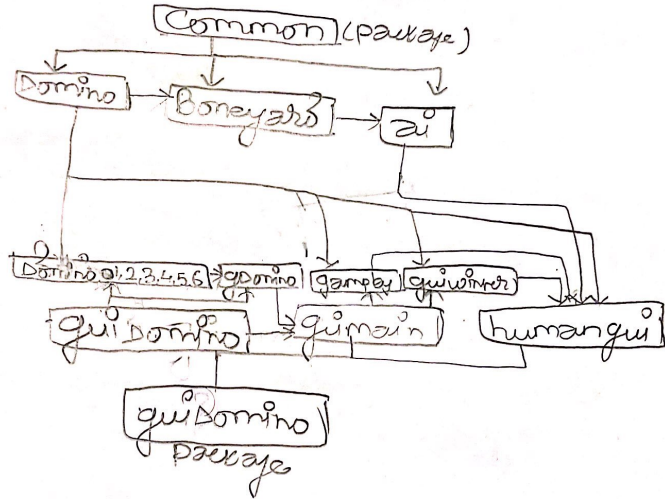 Common (package)
Domino
Boneyard
ai
Domino 0,1,2,3,4,5,6
gDomino
gameplay
guiwinner
guiDomino
guimain
humangui
guiDomino
package